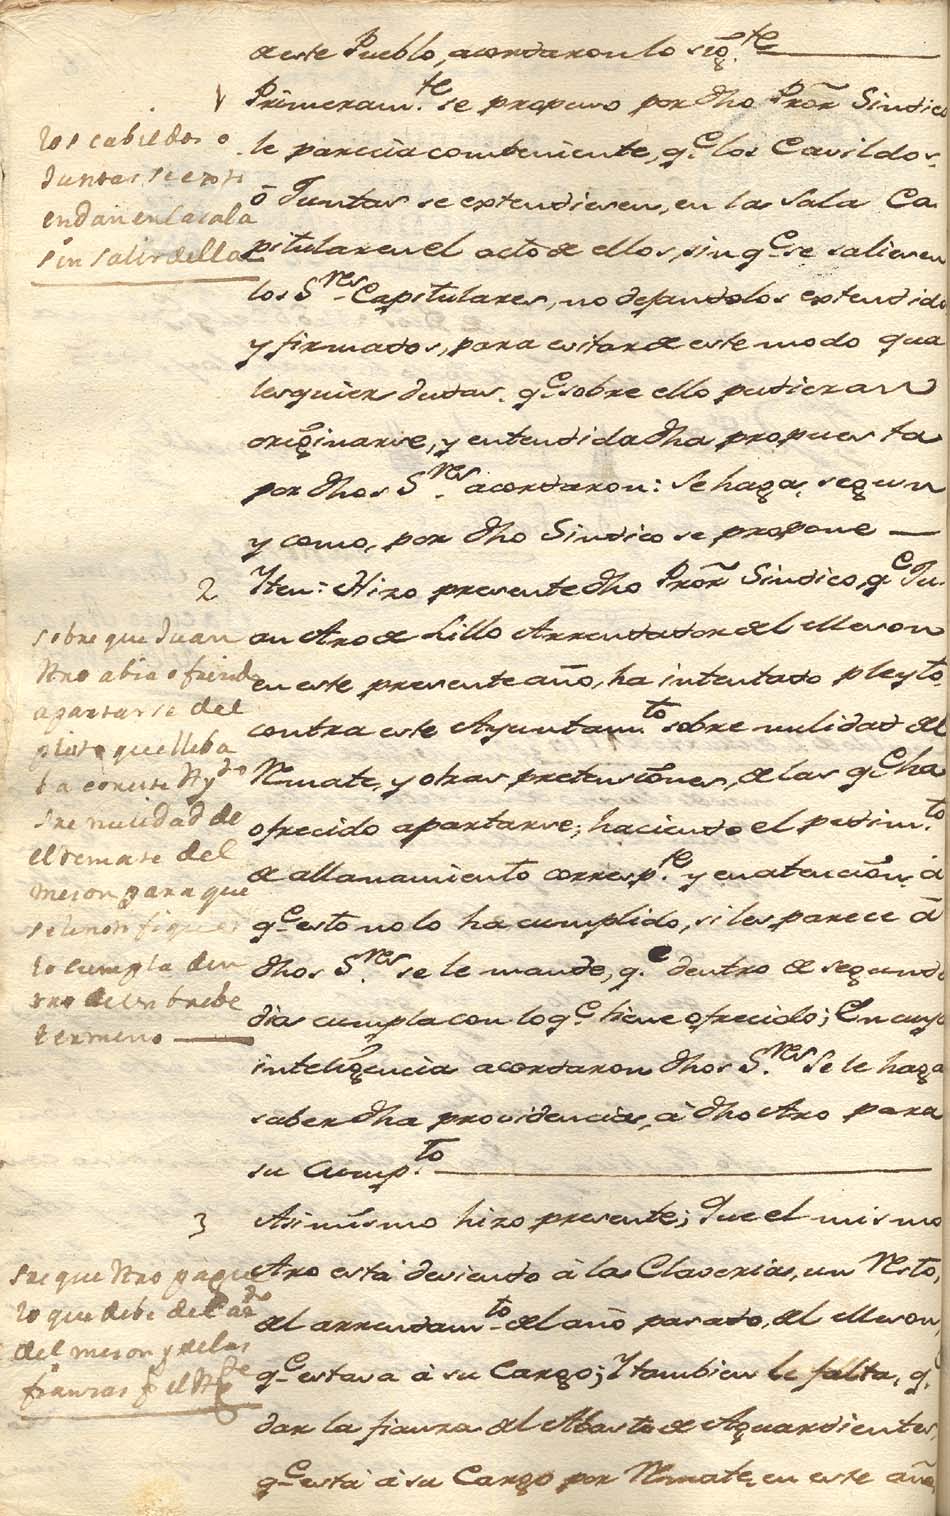 de este Pueblo, acordaron lo sigte
1
Primeramte se propuso por dho Pror Sindico
le parecia combeniente, qe los Cavildos,
ó Juntas se extendiesen, en la Sala Ca-
pitular en el acto de ellos, sin qe se saliesen
los Sres Capitulares, no dejandolos extendidos
y firmados, para evitar de este modo qua
lesquier dudas qe sobre ello pudieran
originarse, y entendida dha propuesta
por dhos Sres acordaron: Se haga, segun
y como, por dho Sindico se propone
los cabildos o
Juntas se exti
endan en la sala
sin salir della
2
Iten: Hizo presente dho Pror Sindico, qe Ju-
an Aro de Lillo Arrendador del Meson
en este presente año, ha intentado pleyto
contra este Ayuntamto sobre nulidad del
Remate, y otras pretensiones, de las qe ha
ofrecido apartarse; haciendo el pedimto
de allanamiento correspte y en atencion á
qe esto no lo ha cumplido, si les parece á
dhos Sres se le mande, qe dentro de segundo
dia cumpla con lo qe tiene ofrecido; En cuya
inteligencia acordaron dhos Sres Se le haga
saber dha providencia, á dho Aro para
su Cumpto
sobre que Juan
Aro abia ofrecido
apartarse del
pleito que lleba
ba con este Aydo
sre nulidad de
el remate del
meson para que
se le notifique
lo cumpla den
tro de un brebe
termeno
3
Asimismo hizo presente; Que el mismo
Aro está deviendo á las Claverias, un Resto,
del arrendamto del año pasado, del Meson,
qe estava á su Cargo; Y tambien le falta, q.
dar la fianza del Abasto de Aguardientes,
qe está á su Cargo por Remate, en este año,
sre que Aro pague
lo que debe del ado
del meson y de las
fianzas